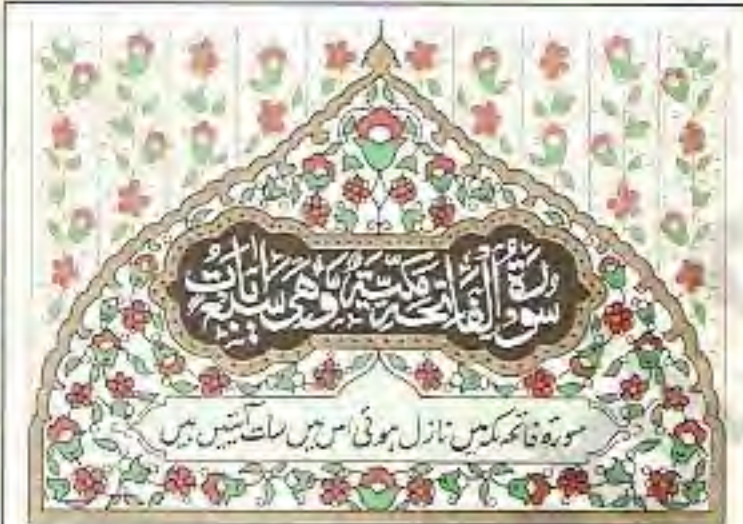 سُورَةُ الْفَاتِحَةِ مَكِّيَّةٌ وَّهِيَ سَبْعُ اٰيَاتٍ
سورۃ فاتحہ مکہ میں نازل ہوئی اس میں سات آیتیں ہیں